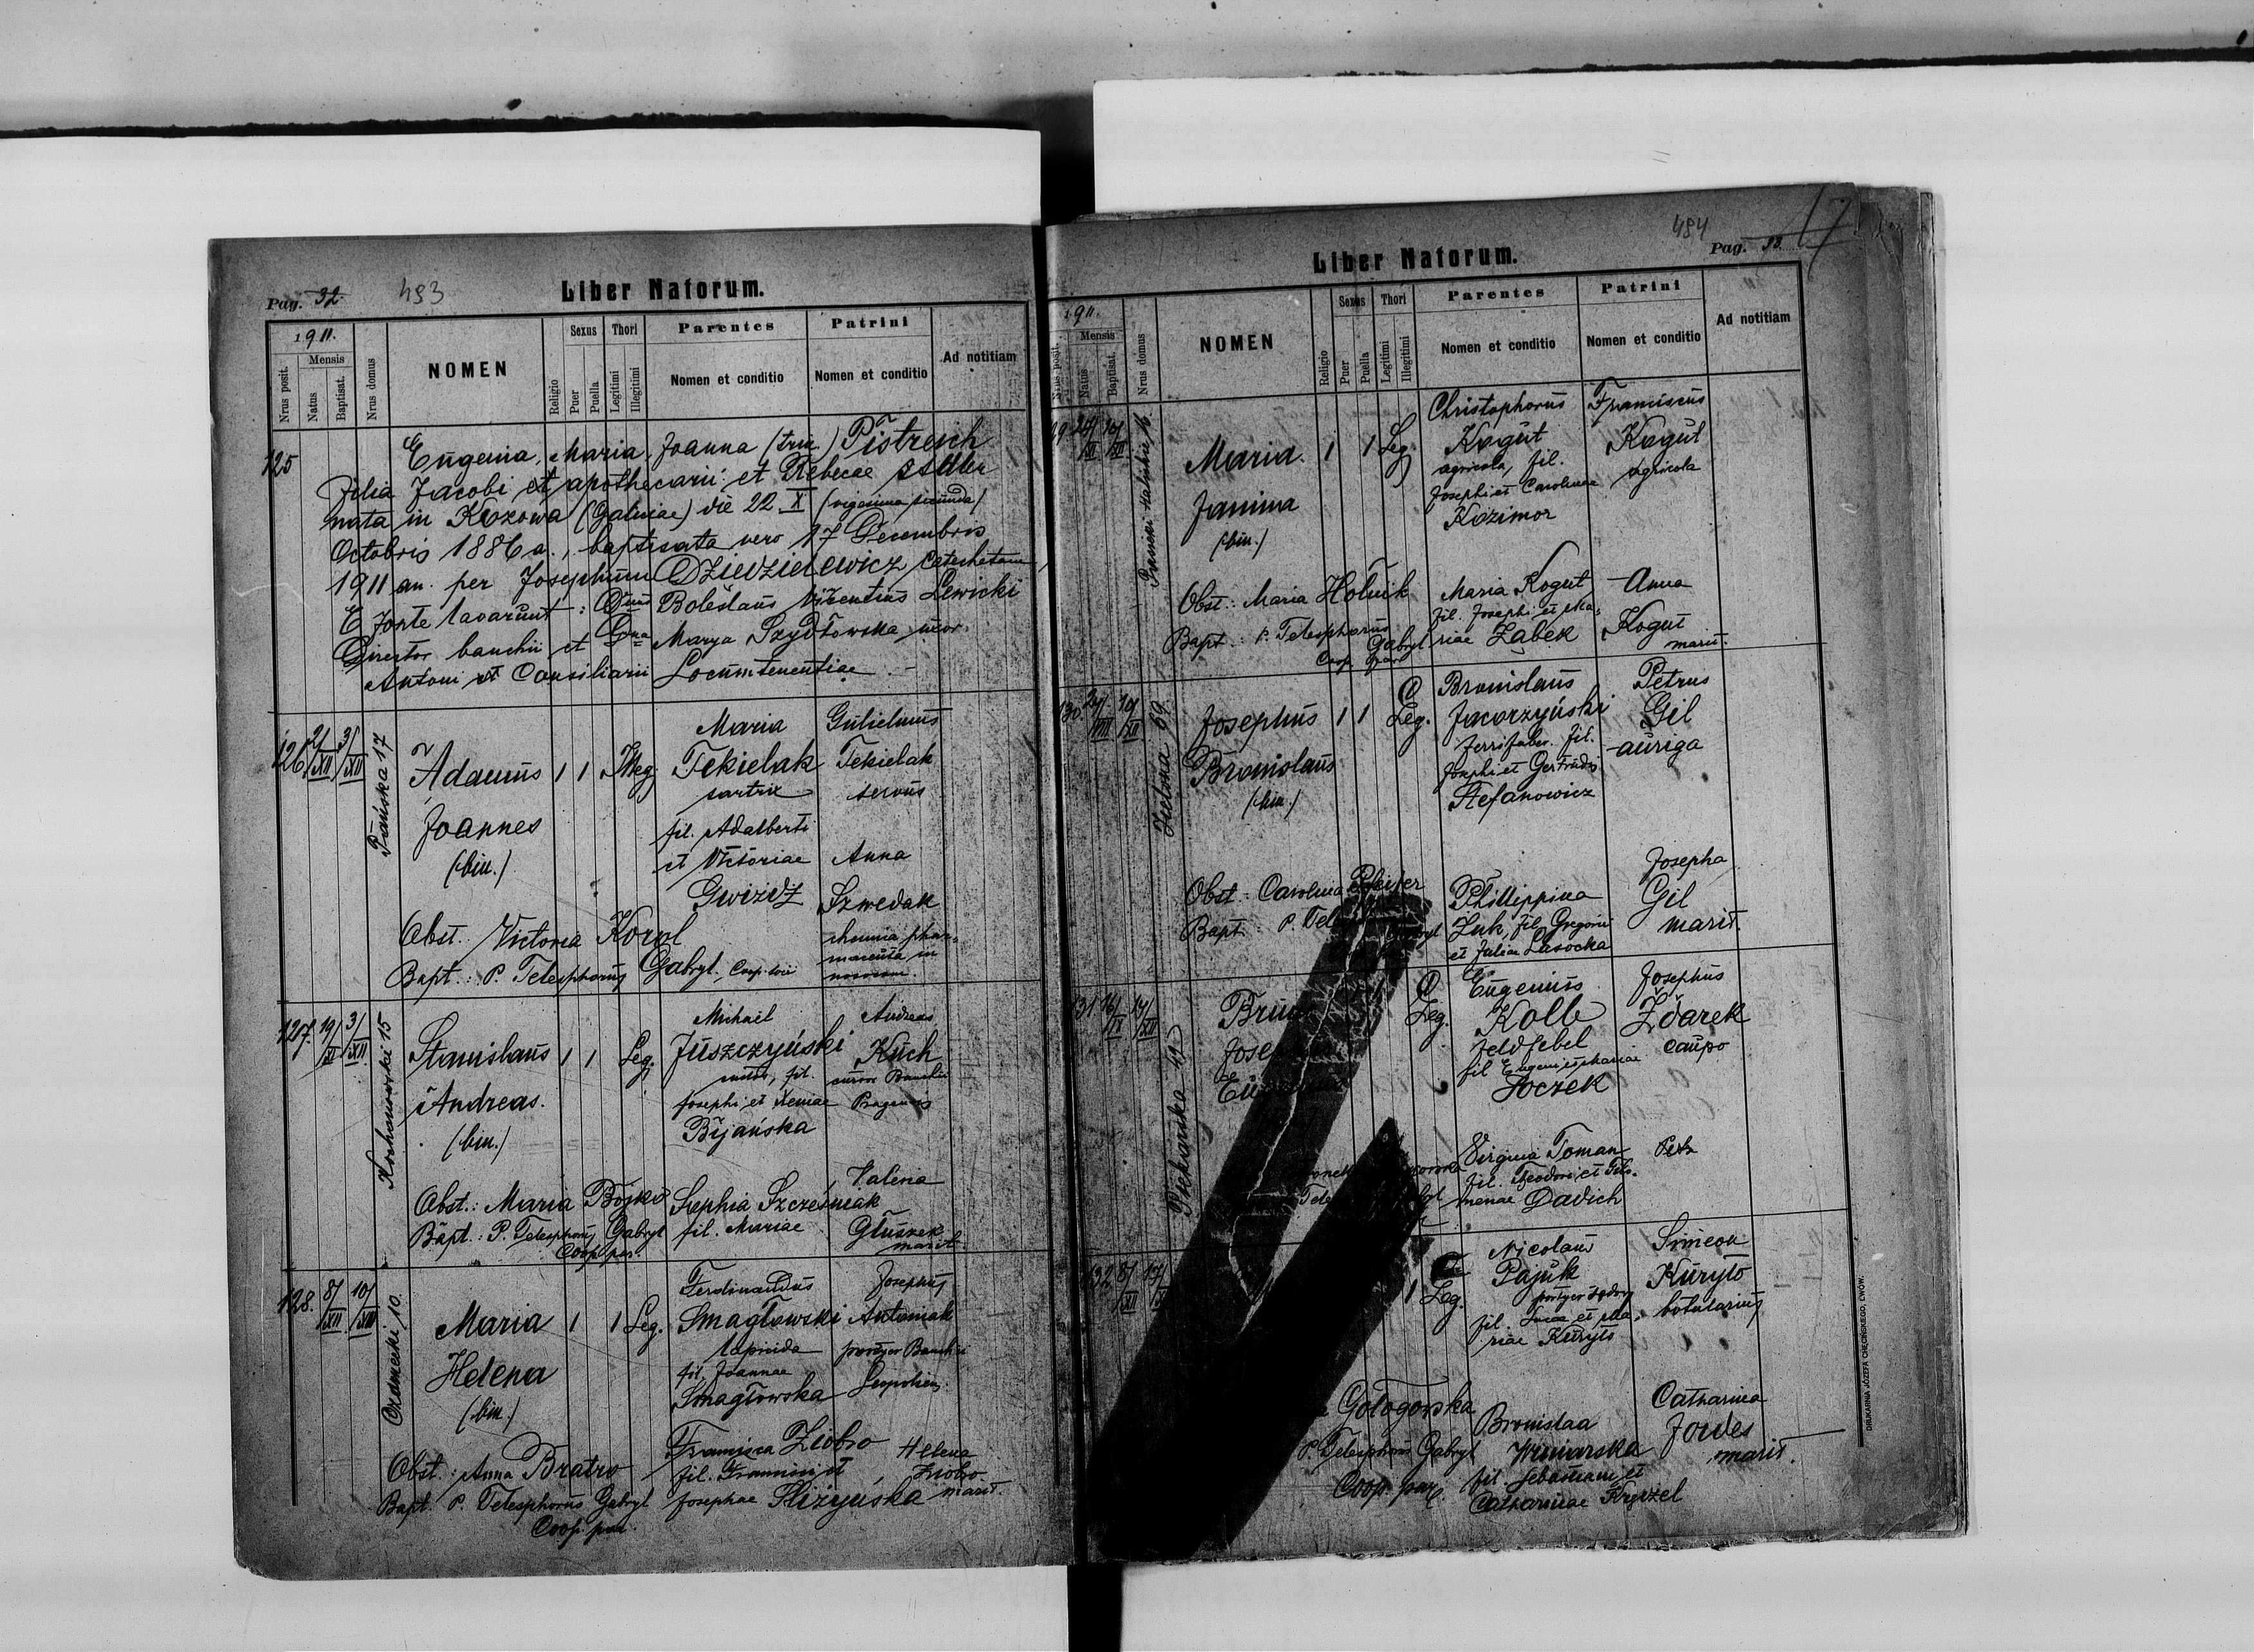 Pag. 32. 493
Liber Natorum.
1911.
Nrus posit.
Mensis
Natus
Baptisat.
Nrus domus
NOMEN
Religio
Sexus
Puer
Puella
Thori
Legitimi
Illegitimi
Parentes
Nomen et conditio
Patrini
Nomen et conditio
Ad notitiam
125
Eugenia, Maria, Joanna (trin.) Pistreich
filia Jacobi apothecarii et Rebecae Adler
nata in Kozowa (Galiciae) die 22 X (vigesima secunda)
Octobris 1886 a., baptisata vero 17 Decembris
1911 an. per Josephum Dziedzielewicz Catechetam,
E fonte lavarunt: Dnus Boleslaus Vicentius Lewicki
Director banchii et Dna Marya Szydłowska uxor
Antoni Consiliarii Locumtenentiae.
126. 2/XII 3/XII
Pańska 17
Adamus 1 1 Illeg.
Joannes
(bin.)
Maria
Tekielak
sartrix
fil. Adalberti
et Victoriae
Gwizdz
Gulielmus
Tekielak
servus
Anna
Szwedak
Obst. Victoria Korol
Bapt.: P. Telesphorus Gabryl, Coop.
127. 19/XI 3/XII
Kochanowski 15
Stanislaus 1 1 Leg.
Andreas.
(bin.)
Michael
Juszczyński
fil.
Josephi et Xeniae
Bijańska
Andreas
Kuch
Pragensis
Obst.: Maria Bojko
Sophia Szcześniak
fil. Mariae
Valeria
Głuszek
marit.
Bapt.: P. Telesphorus Gabryl
Coop. par.
128. 8/XII 10/XII
Maria 1 1 Leg.
Helena
(bin.)
Ferdinandus
Smagłowski
lapicida
fil. Joannae
Smagłowska
Josephus
Antoniak
portyer Banchii
Leopolien.
Obst.: Anna Bratro
Francisca Ziobro
fil. Francisci et
Josephae Sliżyńska
Helena
Ziobro
marit.
Bapt. P. Telesphorus Gabryl
Coop. par.
484 Pag. 33. 17
Liber Natorum.
1911.
Mensis
Natus
Baptisat.
Nrus domus
NOMEN
Religio
Sexus
Puer
Puella
Thori
Legitimi
Illegitimi
Parentes
Nomen et conditio
Patrini
Nomen et conditio
Ad notitiam
29 24/XI 10/XII
Maria 1 1 Leg.
Janina
(bin.)
Christophorus
Kogut
agricola, fil.
Josephi et Carolinae
Kazimor
Franciscus
Kogut
agricola
Obst: Maria Hołuik
Maria Kogut
fil. Josephi et Ma-
riae Ząbek
Anna
Kogut
marit.
Bapt: P. Telesphorus
Gabryl
Coop. par.
130. 24/VIII 10/XII
Zielona 69
Josephus 1 1 Leg.
Bronislaus
(bin.)
Bronislaus
Jacorzyński
ferrifaber. fil.
Josephi et Gertrudis
Stefanowicz
Petrus
Gil
auriga
Obst: Carolina Pfeifer
Bapt: P.
Phillippina
Żuk, fil. Gregorii
et Juliae Lasocka
Josepha
Gil
marit.
131 16/IX 14/XII
Piekarska 49
Leg.
Eugenius
Kolb
feldfebel
fil. Eugenii et Mariae
Soczek
Josephus
Żdarek
caupo
Virginia Toman
fil. Theodori et Filo-
menae Davich
132 8/XII 17/XII
1 Leg.
Nicolaus
Pajuk
fil. Lucae et Ma-
riae Kuryło
Simeon
Kuryło
botularius
Gologorska
P. Telesphorus Gabryl
Coop. par.
Bronislaa
Winiarska
fil. Sebastiani et
Catharinae Krywzel
Catharina
Jowes
marit.
DRUKARNIA JÓZEFA CHĘCIŃSKIEGO, LWÓW.